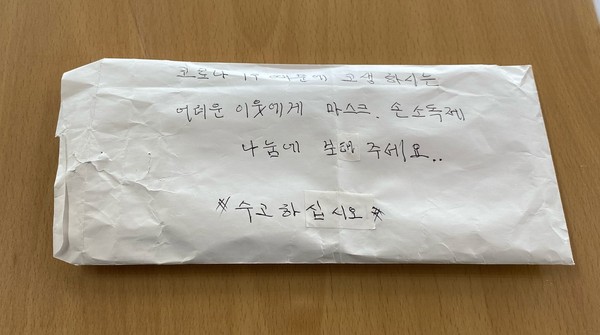 코로나 19 때문에 고생하시는
어려운 이웃에게 마스크. 손소독제
나눔에 보태 주세요..
* 수고하십시오 *